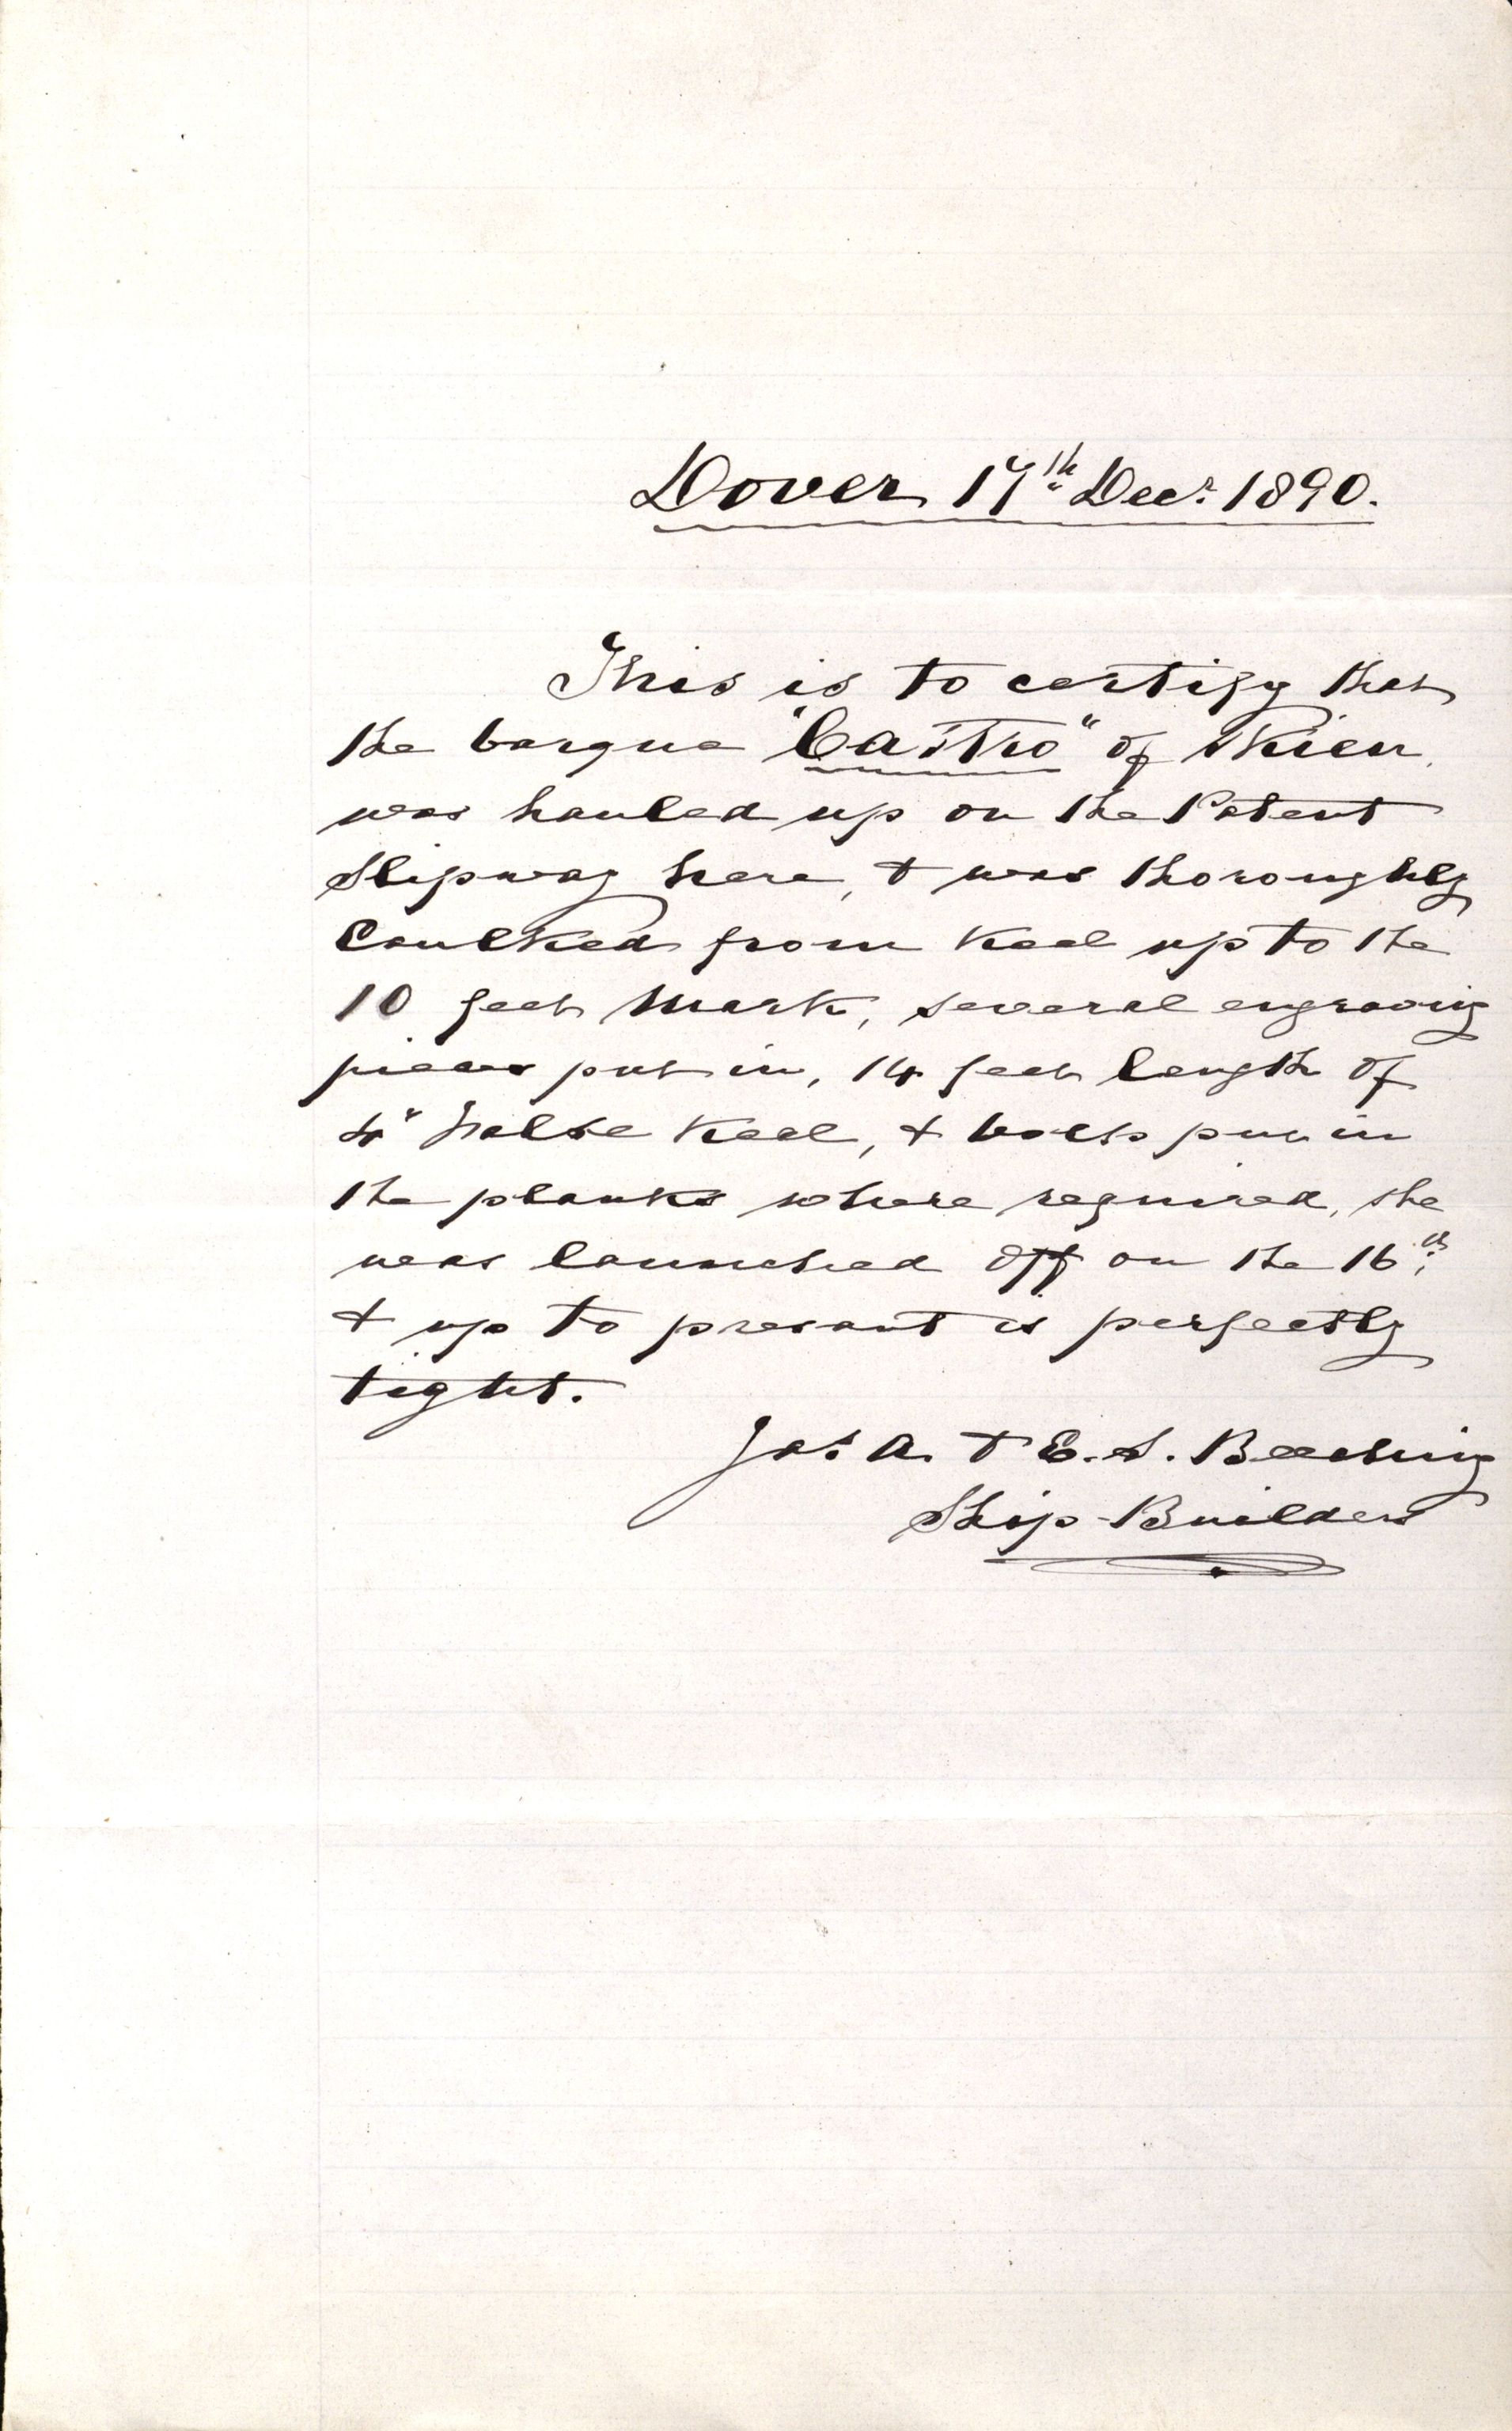 Dover 17th Decr. 1890.
This is to certify that
the barque "Castro" of Skien
was hauled up on the Patent
Slipway here, & was thoroughly
Caulked from keel up to the
10 feet mark, several engraving
pieces put in, 14 feet length of
4" false keel, & bolts put in
the planks where required, she
was launched off on the 16th,
& up to present is perfectly
tight.
Jos. A. & E. S. Beeching
Ship-Builders